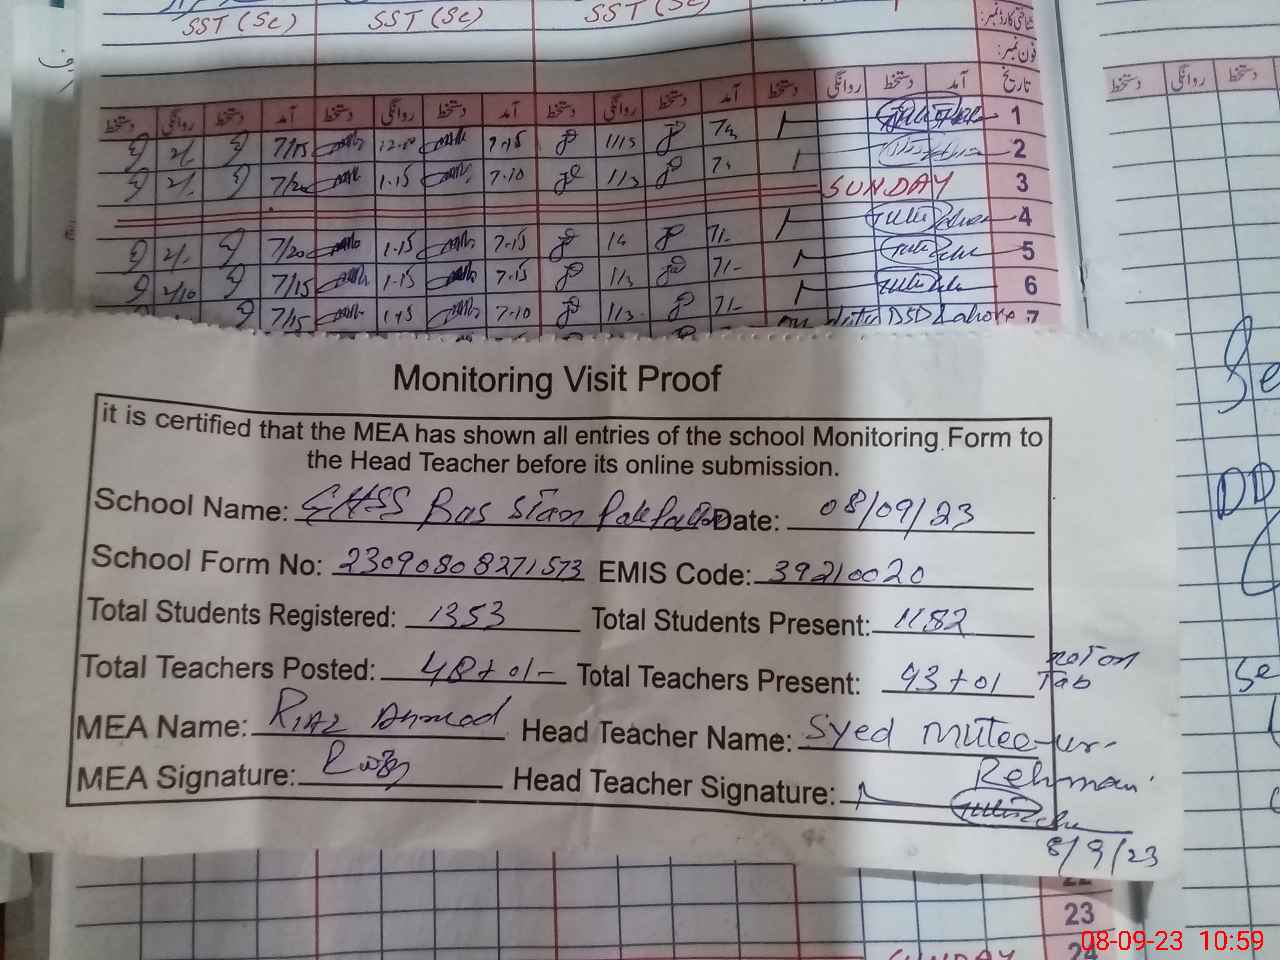 SST (Sc) SST (Sc) SST (Sc)
شناختی کارڈ نمبر:
فون نمبر:
دستخط روانگی دستخط آمد دستخط روانگی دستخط آمد دستخط روانگی دستخط آمد دستخط روانگی دستخط آمد تاریخ
دستخط روانگی دستخط
2/ 7/15 12.00 7.15 1/15 1
2/ 7/20 1.15 7.10 1/3 2
SUNDAY 3
2/ 7/20 1.15 7.15 7/- 4
2/10 7/15 1.15 7.15 1/3 7/- 5
7/15 1.45 7.10 1/3 7/- 6
DSD Lahore 7
Monitoring Visit Proof
it is certified that the MEA has shown all entries of the school Monitoring Form to
the Head Teacher before its online submission.
School Name: GHSS Date: 08/09/23
School Form No: 23090808271573 EMIS Code: 39210020
Total Students Registered: 1353 Total Students Present: 1182
Total Teachers Posted: 48+01- Total Teachers Present: 43+01 not on
Tab
MEA Name: Riaz Ahmad Head Teacher Name: Syed Mutee-ur-
Rehman
MEA Signature: Head Teacher Signature:
8/9/23
22
23
24
SUNDAY
08-09-23 10:59